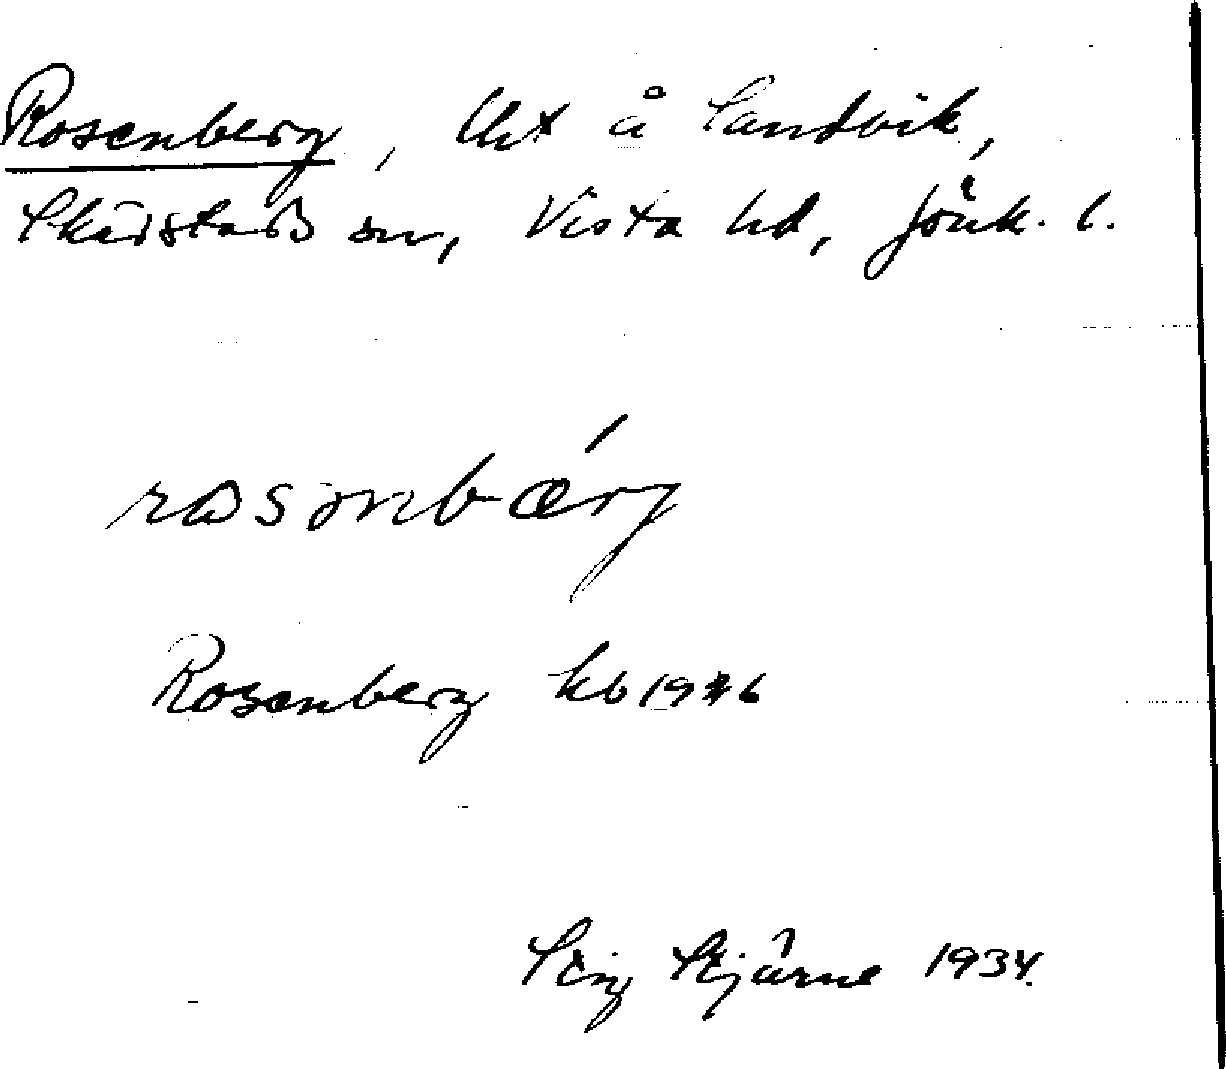 Rosenberg, lht å Sandvik,
Skärstads sn, Vista hd, Jönk. l.
rosɷnbærg
Rosenberg kb 1946
Stig Stjärne 1934.